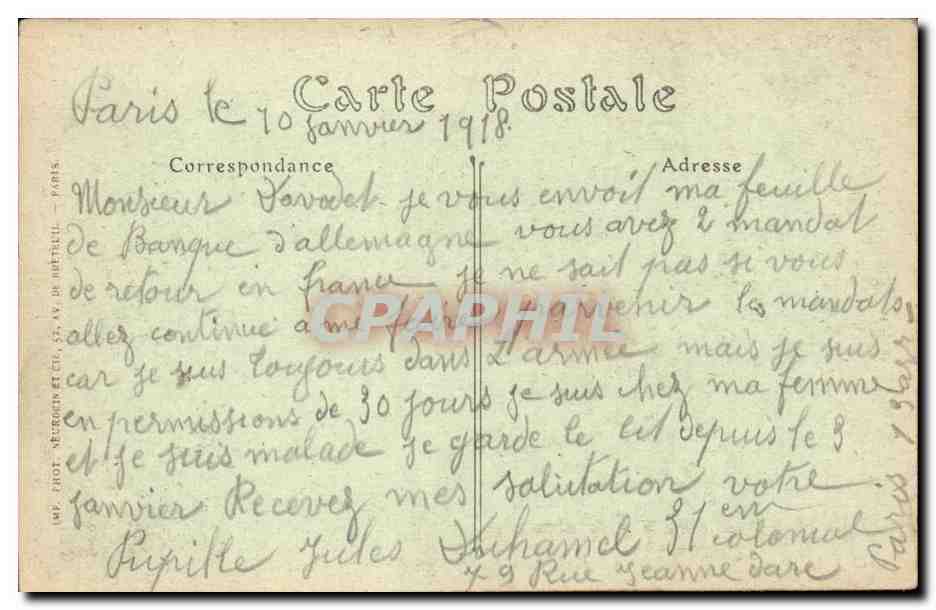 Carte Postale
Paris le 10 janvier 1918.
Correspondance
Adresse
Monsieur je vous envoit ma feuille
de Banque d'allemagne vous avez 2 mandat
de retour en france je ne sait pas si vous
allez continue a me faire parvenir les mandats
car je suis toujours dans L'armée mais je suis
en permissions de 30 jours je suis chez ma femme
et je suis malade je garde le lit depuis le 3
janvier Recevez mes salutation votre
Pupille Jules Duhamel 31 em colonial
79 Rue Jeanne darc
Paris 13 arr
IMP. PHOT. NEURDEIN ET CIE, 52, AV. DE BRETEUIL. — PARIS.
CPAPHIL